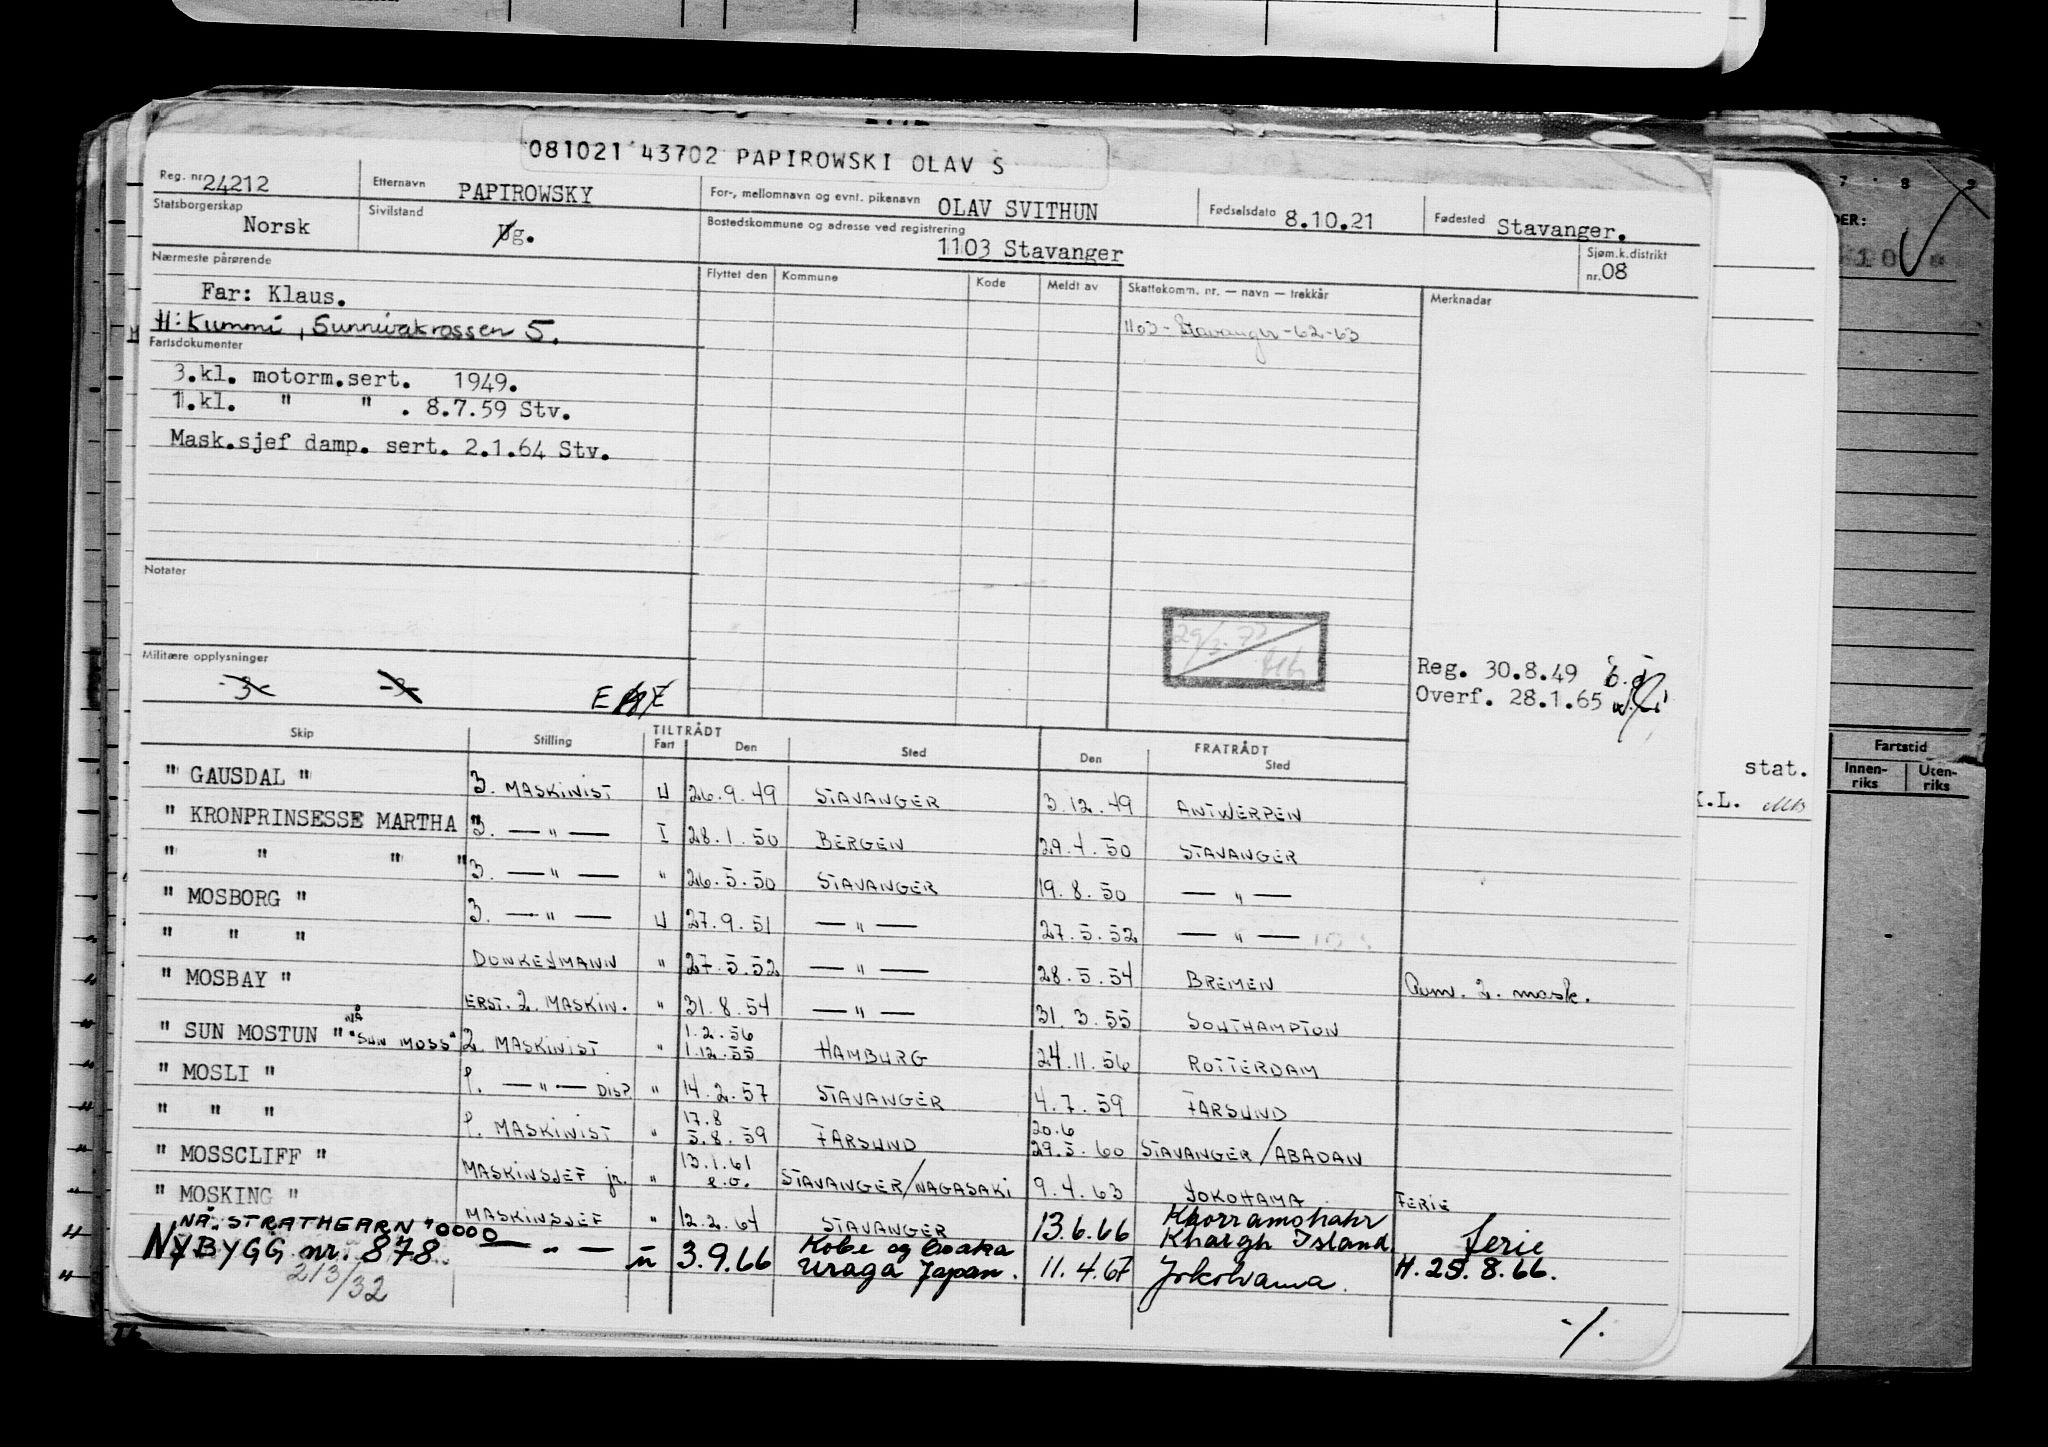 081021 43702 PAPIROWSKI OLAV S
Reg. nr. 24212 Etternavn PAPIROWSKY For-, mellomnavn og evnt. pikenavn OLAV SVITHUN Fødselsdato 8.10.21 Fødested Stavanger.
Statsborgerskap Norsk Sivilstand Ug. Bostedskommune og adresse ved registrering 1103 Stavanger Sjøm.k.distrikt nr. 08
Nærmeste pårørende Flyttet den Kommune Kode Meldt av Skattekomm. nr. — navn — trekkår Merknader
Far: Klaus.
H: Kummi, Sunnivakrossen 5. 1103 - Stavanger - 62-63
Fartsdokumenter
3.kl. motorm.sert. 1949.
1.kl. " " . 8.7.59 Stv.
Mask.sjef damp. sert. 2.1.64 Stv.
Notater
Militære opplysninger
-3- -3- E
Reg. 30.8.49
Overf. 28.1.65
Skip Stilling TILTRÅDT Fart Den Sted FRATRÅDT Den Sted
" GAUSDAL " 3. MASKINIST U 26.9.49 STAVANGER 3.12.49 ANTWERPEN
" KRONPRINSESSE MARTHA " 3. — " — I 28.1.50 BERGEN 29.4.50 STAVANGER
" " " " 3. — " — " 26.5.50 STAVANGER 19.8.50 — " —
" MOSBORG " 3. — " — U 27.9.51 — " — 27.5.52 — " —
" " " DONKEYMANN " 27.5.52 — " — 28.5.54 BREMEN Aum. 2. mask.
" MOSBAY " ERST. 2. MASKIN. " 31.8.54 — " — 31.3.55 SOUTHAMPTON
" SUN MOSTUN " NÅ "SUN MOSS" 2. MASKINIST " 1.2.56 1.12.55 HAMBURG 24.11.56 ROTTERDAM
" MOSLI " 1. — " — DISP. " 14.2.57 STAVANGER 4.7.59 FARSUND
" " " 1. MASKINIST " 17.8 5.8.59 FARSUND 20.6 29.5.60 STAVANGER/ABADAN
" MOSSCLIFF " MASKINSJEF jr. " 13.1.61 e.o. STAVANGER/NAGASAKI 9.4.63 YOKOHAMA FERIE
" MOSKING " MASKINSJEF " 12.2.64 STAVANGER 13.6.66 Khorramshahr Khargh Island ferie
NÅ: STRATHEARN "
NYBYGG nr. 878 — " — u 3.9.66 Kobe og Osaka Uraga Japan. 11.4.67 Jokohama. H. 25.8.66.
213/32
-/.
7 8 9
DER:
10
stat.
K.L.
Fartstid
Innen-riks Uten-riks